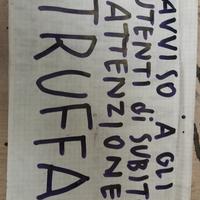 AVVISO AGLI
UTENTI di SUBIT
ATTENZIONE
TRUFFA